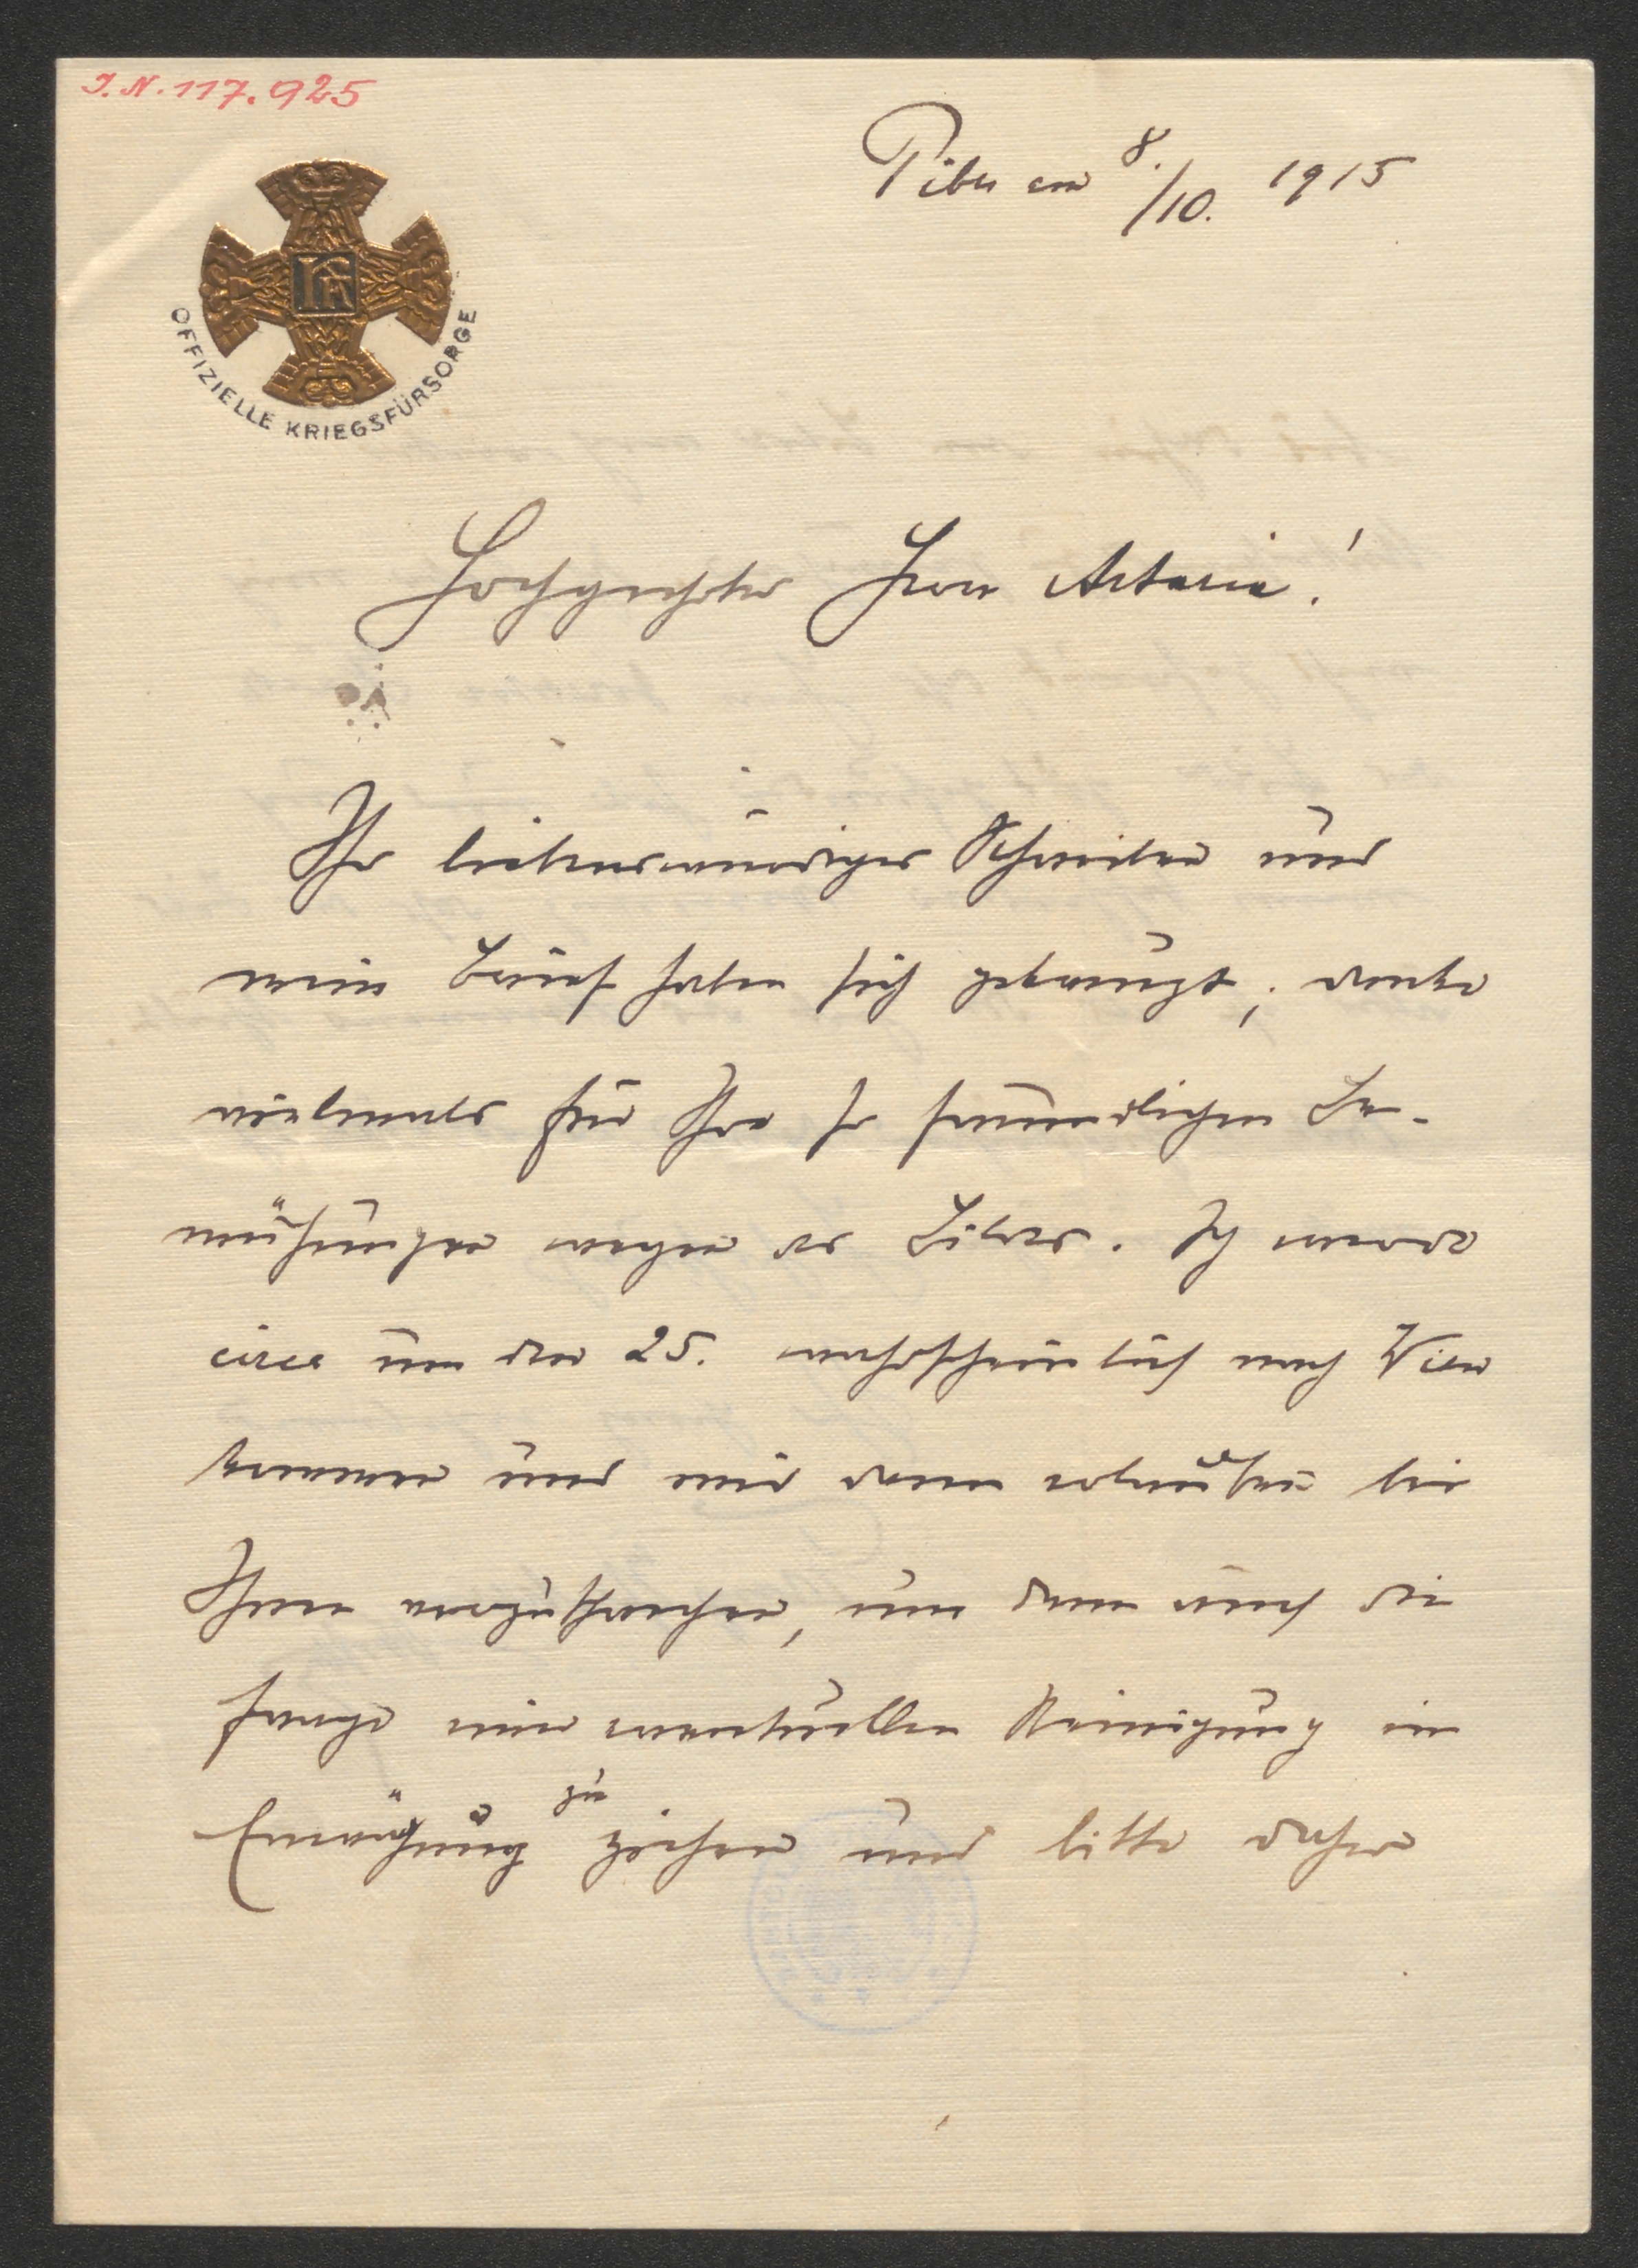 I.N. 117.925
Piber am 8./10. 1915
OFFIZIELLE KRIEGSFÜRSORGE
Hochgeehrter Herr Artaria!
Ihr liebenswürdiges Schreiben und
mein Brief haben sich gekreuzt; danke
vielmals für Ihre so freundlichen Be-
mühungen wegen der Bilder. Ich werde
circa um den 25. wahrscheinlich nach Wien
kommen und mir dann erlauben bei
Ihnen vorzusprechen, um dann auch die
Frage einer eventuellen Reinigung in
Erwägung zu ziehen und bitte daher